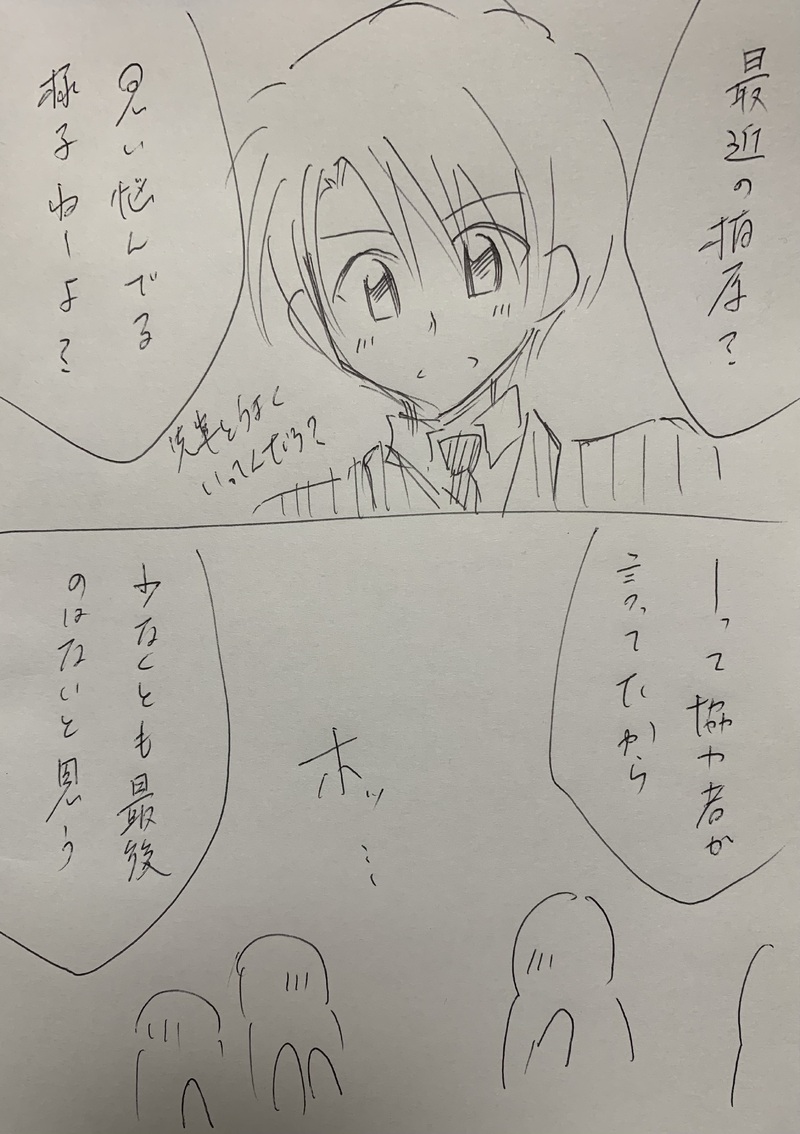 最近の柏原?
思い悩んでる
様子ねーよ?
先輩とうまく
いってんだろ?
ーって協力者が
言ってたから
ホッ…
少なくとも最後
のはないと思う